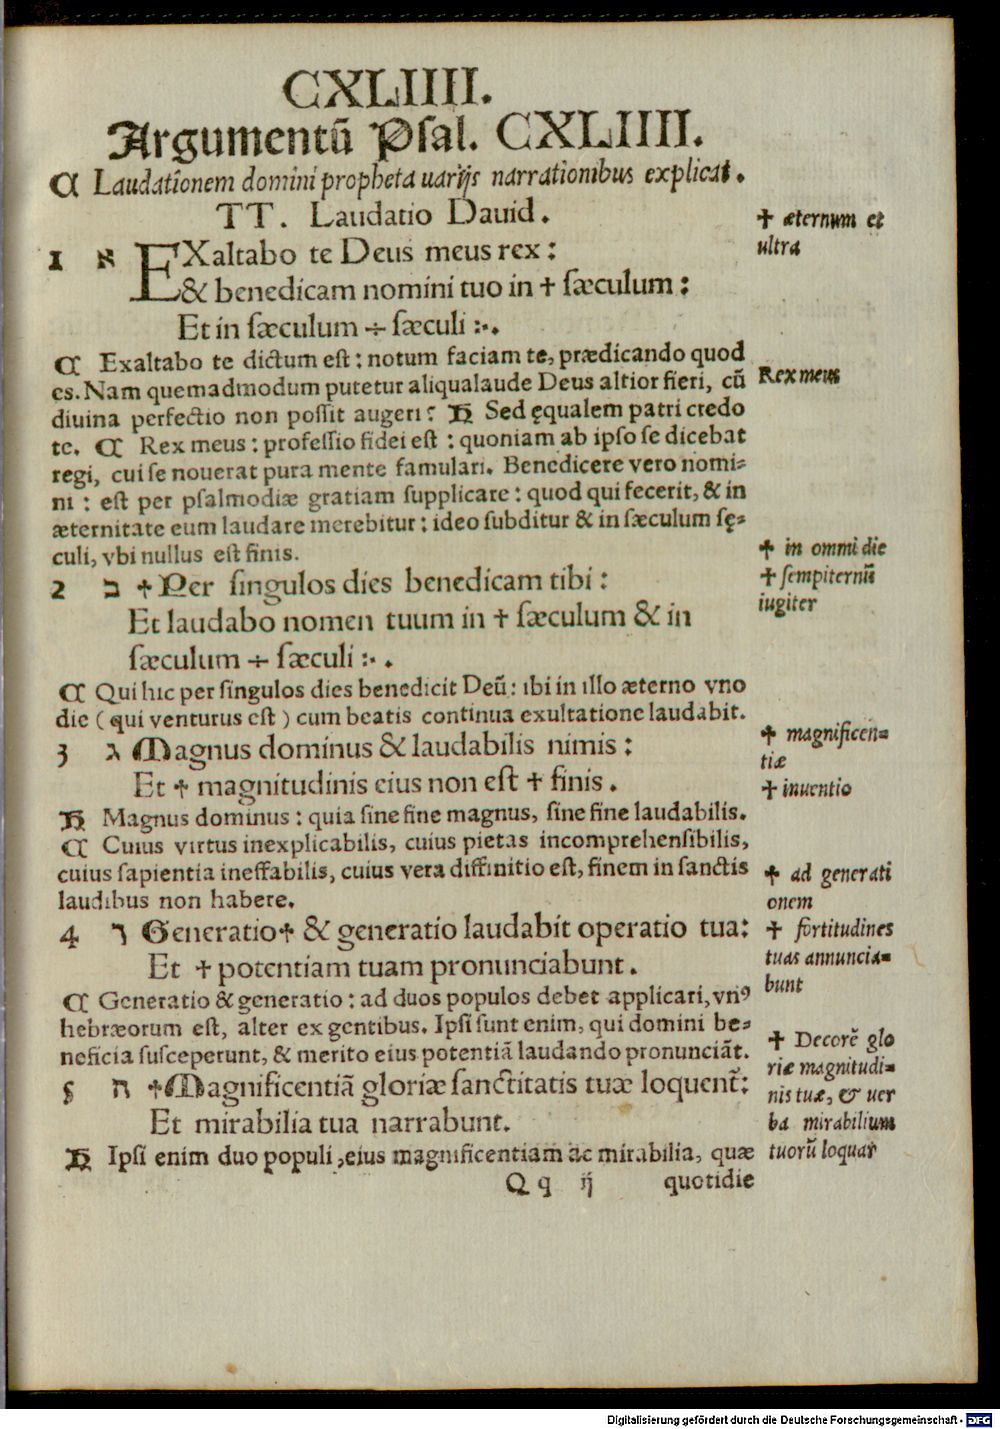 CXLIIII.
Argumentū Psal. CXLIIII.
C Laudationem domini propheta uarijs narrationibus explicat.
TT. Laudatio Dauid.
1 א EXaltabo te Deus meus rex:
& benedicam nomini tuo in † sæculum:
Et in sæculum ÷ sæculi :·.
C Exaltabo te dictum est: notum faciam te, prædicando quod
es. Nam quemadmodum putetur aliqualaude Deus altior fieri, cū
diuina perfectio non possit augeri? H Sed ęqualem patri credo
te. C Rex meus: professio fidei est: quoniam ab ipso se dicebat
regi, cui se nouerat pura mente famulari. Benedicere vero nomi-
ni: est per psalmodiæ gratiam supplicare: quod qui fecerit, & in
æternitate eum laudare merebitur: ideo subditur & in sæculum sę-
culi, vbi nullus est finis.
2 ב †Per singulos dies benedicam tibi:
Et laudabo nomen tuum in † sæculum & in
sæculum ÷ sæculi :·.
C Qui hic per singulos dies benedicit Deū: ibi in illo æterno vno
die (qui venturus est) cum beatis continua exultatione laudabit.
3 ג Magnus dominus & laudabilis nimis:
Et † magnitudinis eius non est † finis.
H Magnus dominus: quia sine fine magnus, sine fine laudabilis.
C Cuius virtus inexplicabilis, cuius pietas incomprehensibilis,
cuius sapientia ineffabilis, cuius vera diffinitio est, finem in sanctis
laudibus non habere.
4 ד Generatio† & generatio laudabit operatio tua:
Et † potentiam tuam pronunciabunt.
C Generatio & generatio: ad duos populos debet applicari, vnꝰ
hebræorum est, alter ex gentibus. Ipsi sunt enim, qui domini be-
neficia susceperunt, & merito eius potentiā laudando pronunciāt.
5 ה †Magnificentiā gloriæ sanctitatis tuæ loquent᷑:
Et mirabilia tua narrabunt.
H Ipsi enim duo populi, eius magnificentiam ac mirabilia, quæ
Qq ij quotidie
† æternum et
ultra
Rex meus
† in omni die
† sempiternū
iugiter
† magnificen-
tiæ
† inuentio
† ad generati
onem
† fortitudines
tuas annuncia-
bunt
† Decorē glo
riæ magnitudi-
nis tuæ, & uer
ba mirabilium
tuorū loquar
Digitalisierung gefördert durch die Deutsche Forschungsgemeinschaft - DFG